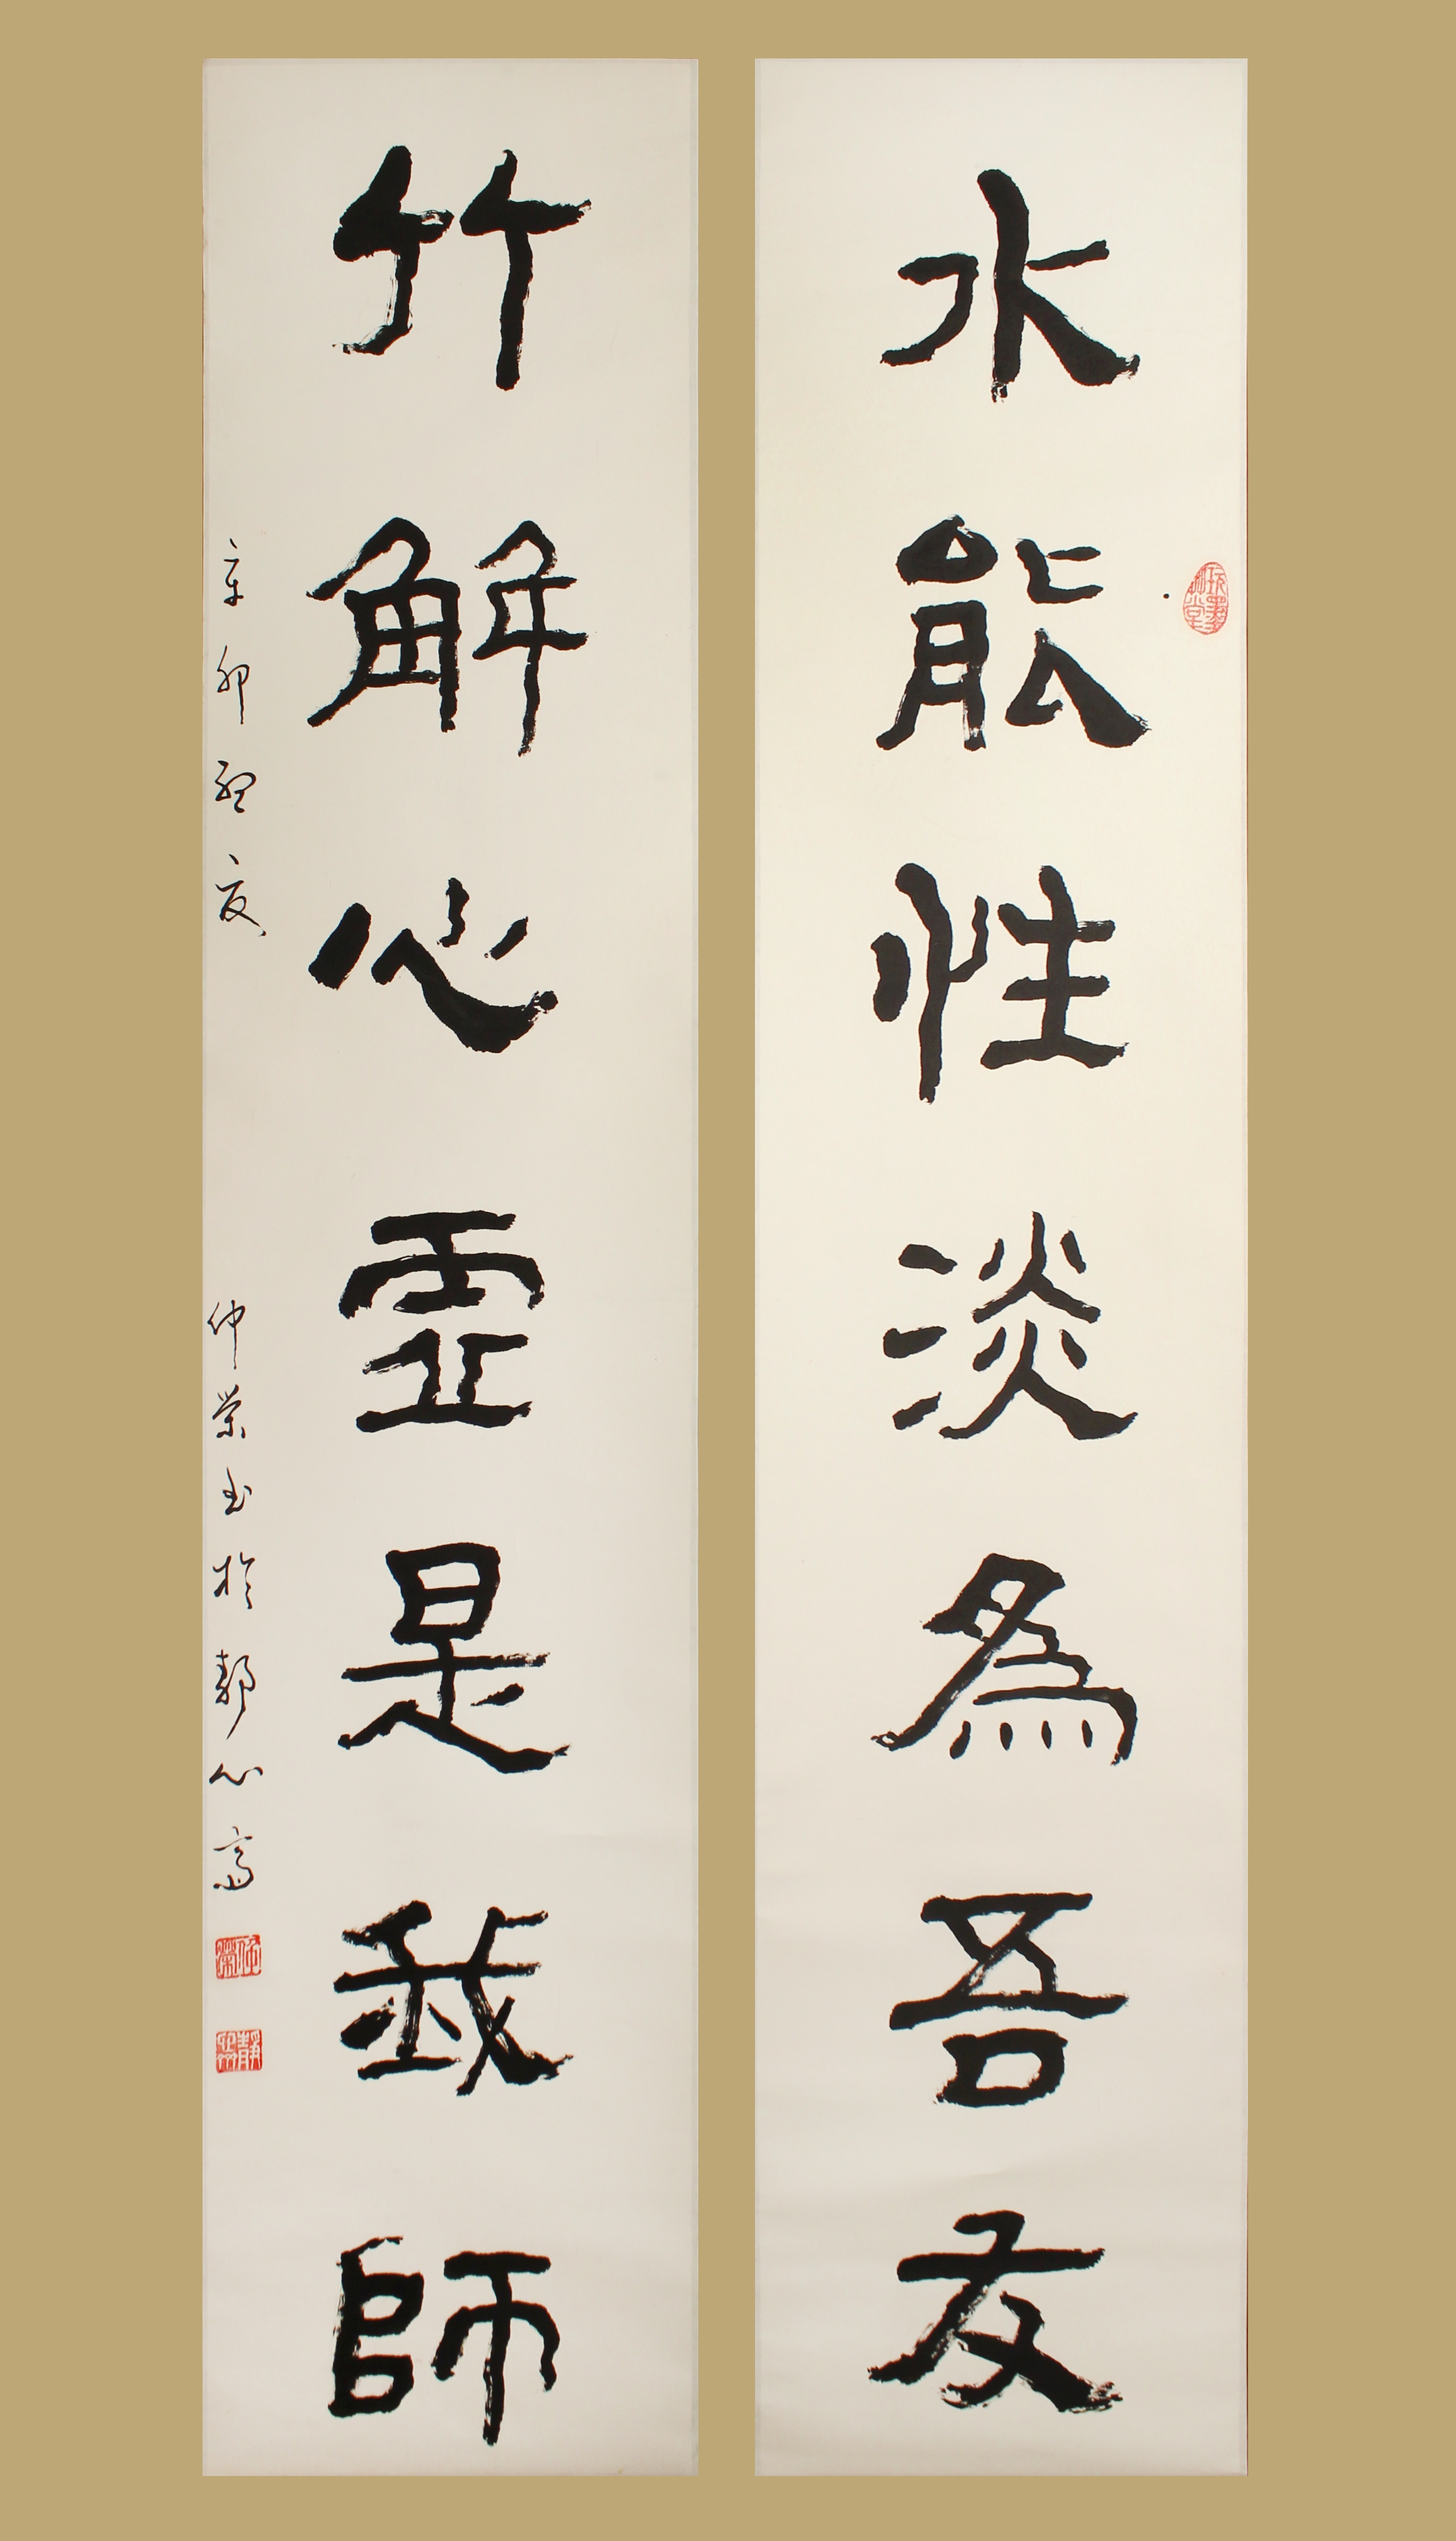 水能性淡為吾友
竹解心虛是我師
辛卯初夏
仲榮書於靜心齋